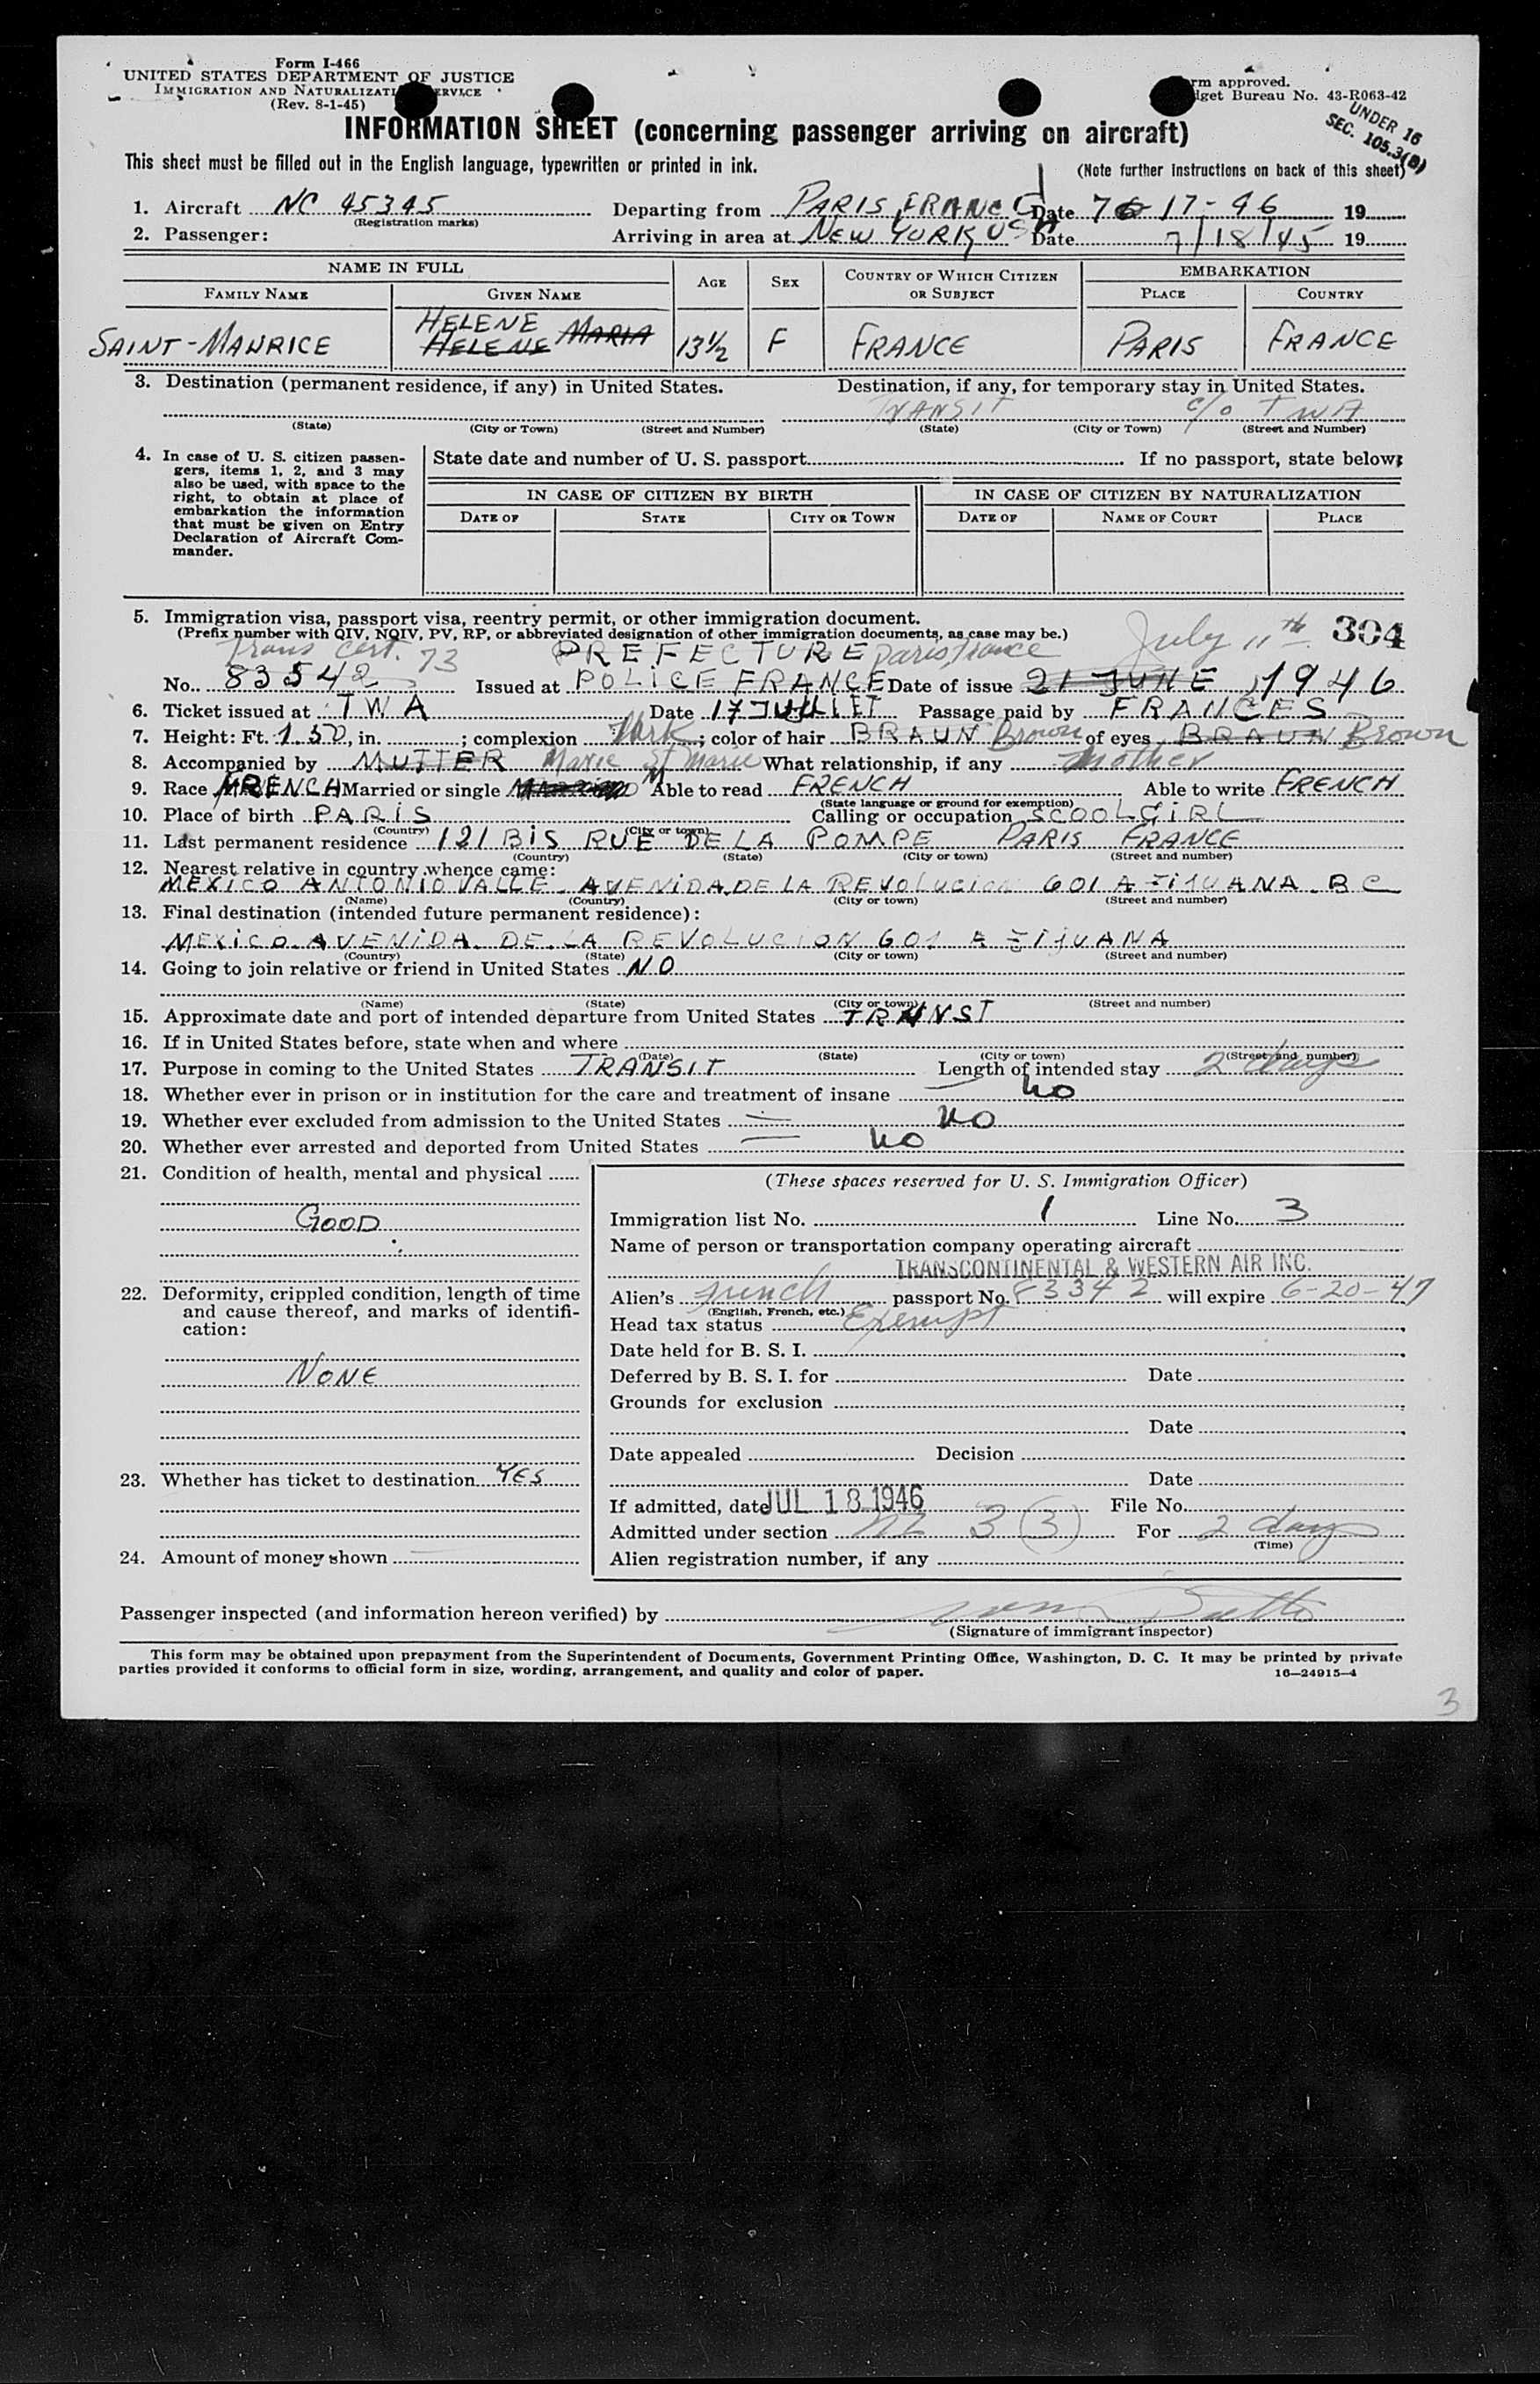 Form I-466
UNITED STATES DEPARTMENT OF JUSTICE
IMMIGRATION AND NATURALIZATI ERVICE
(Rev. 8-1-45)
rm approved.
dget Bureau No. 43-R063-42
UNDER 16
SEC. 105.3(B)
INFORMATION SHEET (concerning passenger arriving on aircraft)
This sheet must be filled out in the English language, typewritten or printed in ink.
(Note further instructions on back of this sheet)
1. Aircraft NC 45345 Departing from PARIS, FRANCE Date 7 17-46 19
(Registration marks)
2. Passenger: Arriving in area at NEW YORK USA Date 7/18/45 19
NAME IN FULL AGE SEX COUNTRY OF WHICH CITIZEN OR SUBJECT EMBARKATION
FAMILY NAME GIVEN NAME PLACE COUNTRY
HELENE
SAINT-MAURICE HELENE MARIA 13½ F FRANCE PARIS FRANCE
3. Destination (permanent residence, if any) in United States. Destination, if any, for temporary stay in United States.
TRANSIT c/o TWA
(State) (City or Town) (Street and Number) (State) (City or Town) (Street and Number)
4. In case of U. S. citizen passen-
gers, items 1, 2, and 3 may
also be used, with space to the
right, to obtain at place of
embarkation the information
that must be given on Entry
Declaration of Aircraft Com-
mander.
State date and number of U. S. passport If no passport, state below:
IN CASE OF CITIZEN BY BIRTH IN CASE OF CITIZEN BY NATURALIZATION
DATE OF STATE CITY OR TOWN DATE OF NAME OF COURT PLACE
5. Immigration visa, passport visa, reentry permit, or other immigration document.
(Prefix number with QIV, NQIV, PV, RP, or abbreviated designation of other immigration documents, as case may be.)
July 11th 304
Trans Cert. 73 PREFECTURE Paris, France
No. 83542 Issued at POLICE FRANCE Date of issue 21 JUNE 1946
6. Ticket issued at TWA Date 17 JUILLET Passage paid by FRANCES
7. Height: Ft. 1.50, in. ; complexion Dark; color of hair BRAUN Brown of eyes BRAUN Brown
8. Accompanied by MUTTER Marie St Marie What relationship, if any Mother
9. Race FRENCH Married or single Able to read FRENCH Able to write FRENCH
(State language or ground for exemption)
10. Place of birth PARIS Calling or occupation SCOOLGIRL
(Country) (City or town)
11. Last permanent residence 121 BIS RUE DE LA POMPE PARIS FRANCE
(Country) (State) (City or town) (Street and number)
12. Nearest relative in country whence came:
MEXICO ANTONIO VALLE AVENIDA DE LA REVOLUCION 601 A TIJUANA B C
(Name) (Country) (City or town) (Street and number)
13. Final destination (intended future permanent residence):
MEXICO AVENIDA DE LA REVOLUCION 601 A TIJUANA
(Country) (State) (City or town) (Street and number)
14. Going to join relative or friend in United States NO
(Name) (State) (City or town) (Street and number)
15. Approximate date and port of intended departure from United States TRANST
16. If in United States before, state when and where
(Date) (State) (City or town) (Street and number)
17. Purpose in coming to the United States TRANSIT Length of intended stay 2 days
18. Whether ever in prison or in institution for the care and treatment of insane no
19. Whether ever excluded from admission to the United States no
20. Whether ever arrested and deported from United States no
21. Condition of health, mental and physical
GOOD
22. Deformity, crippled condition, length of time
and cause thereof, and marks of identifi-
cation:
NONE
23. Whether has ticket to destination YES
24. Amount of money shown
(These spaces reserved for U. S. Immigration Officer)
Immigration list No. 1 Line No. 3
Name of person or transportation company operating aircraft
TRANSCONTINENTAL & WESTERN AIR INC.
Alien's french passport No. 83342 will expire 6-20-47
(English, French, etc.)
Head tax status Exempt
Date held for B. S. I.
Deferred by B. S. I. for Date
Grounds for exclusion
Date
Date appealed Decision
Date
If admitted, date JUL 18 1946 File No.
Admitted under section 3 (3) For 2 days
(Time)
Alien registration number, if any
Passenger inspected (and information hereon verified) by
(Signature of immigrant inspector)
This form may be obtained upon prepayment from the Superintendent of Documents, Government Printing Office, Washington, D. C. It may be printed by private
parties provided it conforms to official form in size, wording, arrangement, and quality and color of paper. 16—24915-4
3